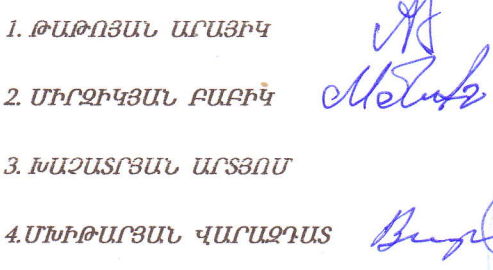 1. ԹԱԹՈՅԱՆ ԱՐԱՅԻԿ
2. ՄԻՐԶԻԿՅԱՆ ԲԱԲԻԿ
3. ԽԱՉԱՏՐՅԱՆ ԱՐՏՅՈՄ
4.ՄԽԻԹԱՐՅԱՆ ՎԱՐԱԶԴԱՏ